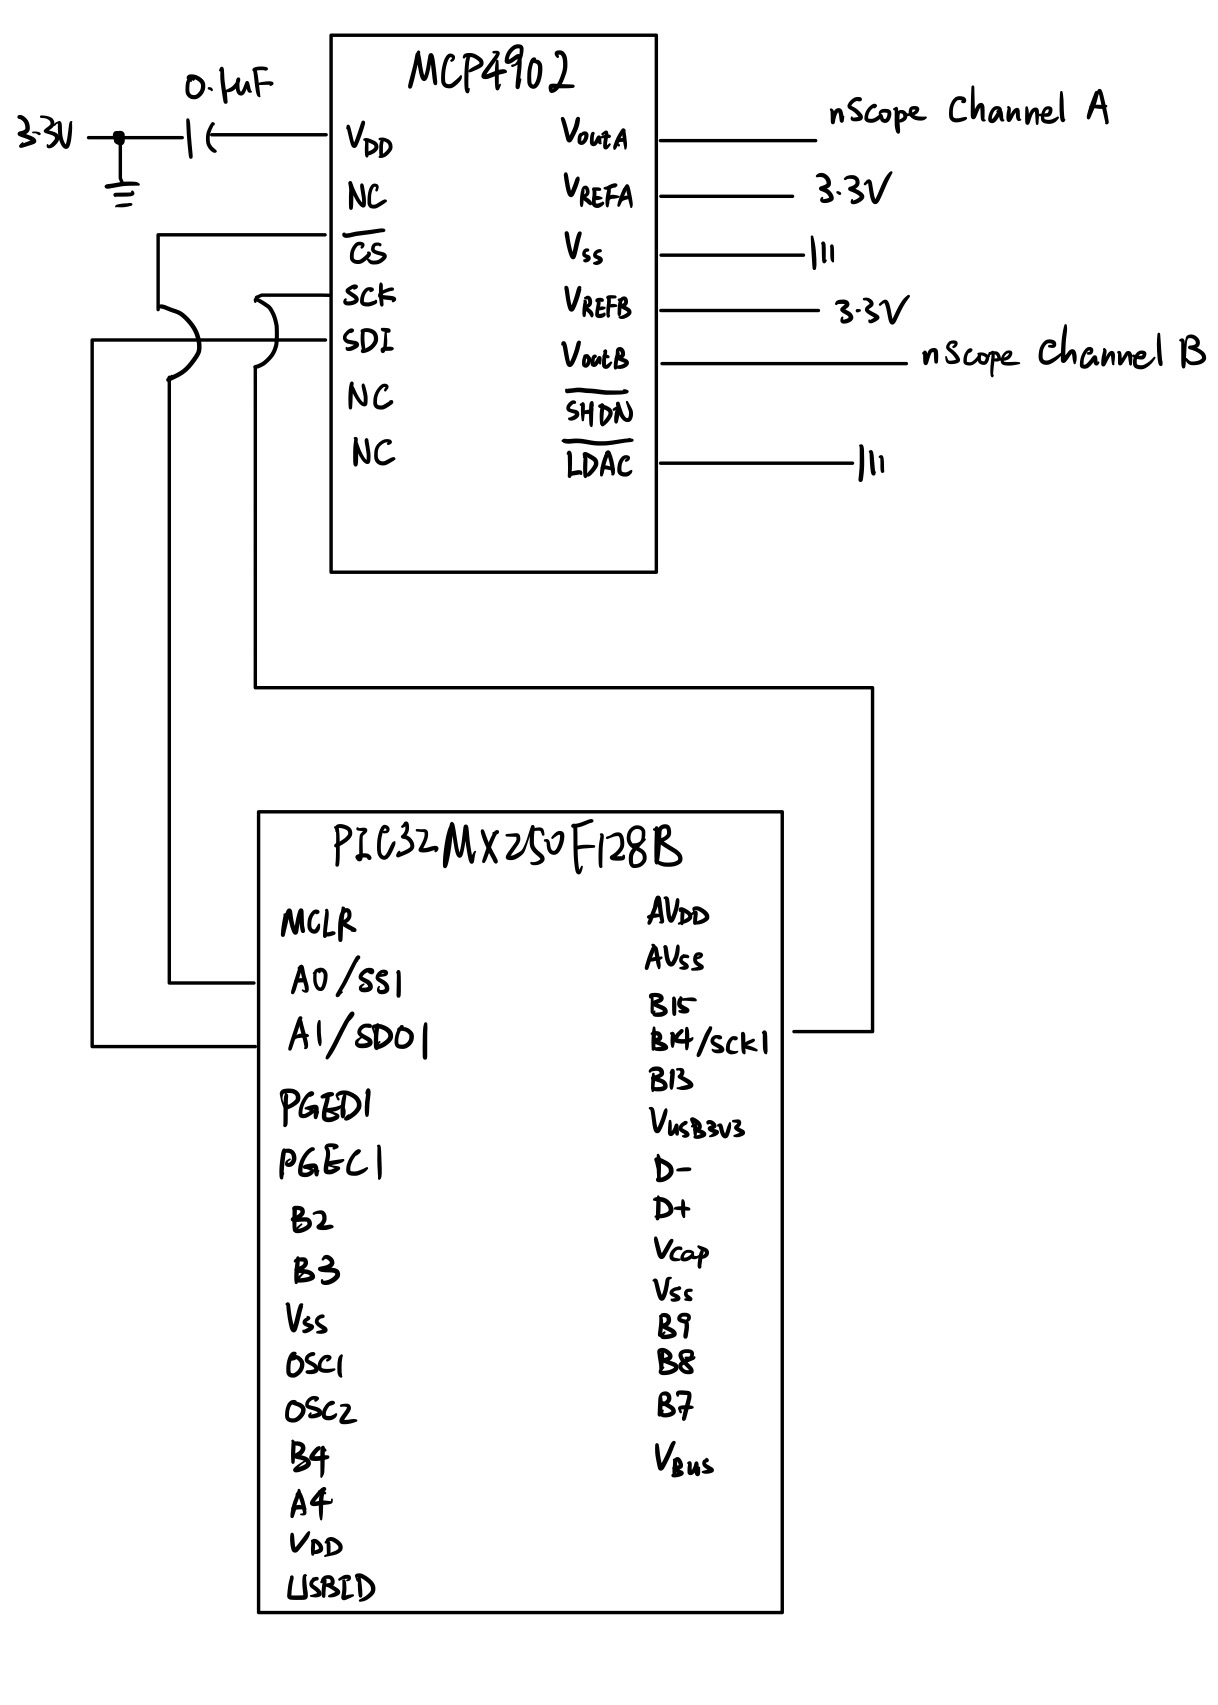 MCP4902
0.1uF
3.3V
VDD
NC
CS
SCK
SDI
NC
NC
VoutA
VREFA
Vss
VREFB
VoutB
SHDN
LDAC
nScope Channel A
3.3V
3.3V
nScope Channel B
PIC32MX250F128B
MCLR
A0/SS1
A1/SDO1
PGED1
PGEC1
B2
B3
Vss
OSC1
OSC2
B4
A4
VDD
USBID
AVDD
AVss
B15
B14/SCK1
B13
VUSB3V3
D-
D+
Vcap
Vss
B9
B8
B7
VBus